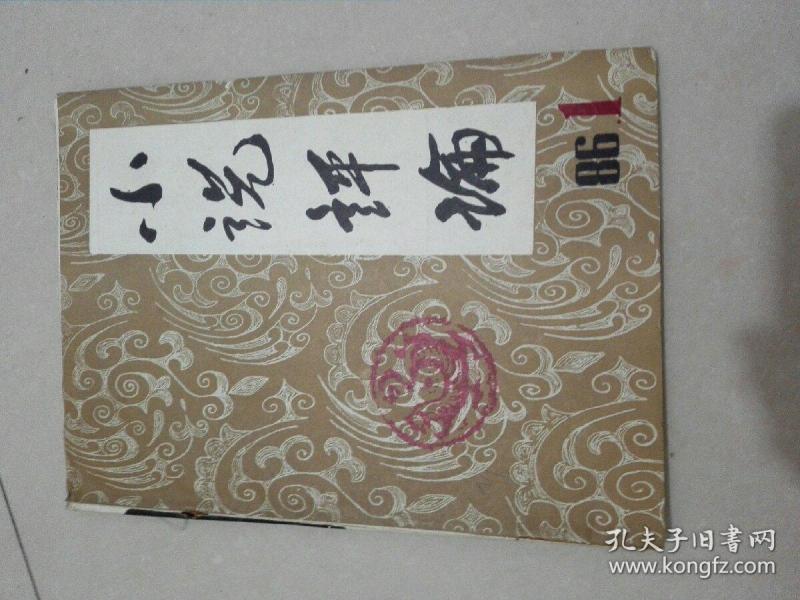 小说评论
86.1
孔夫子旧書网
www.kongfz.com